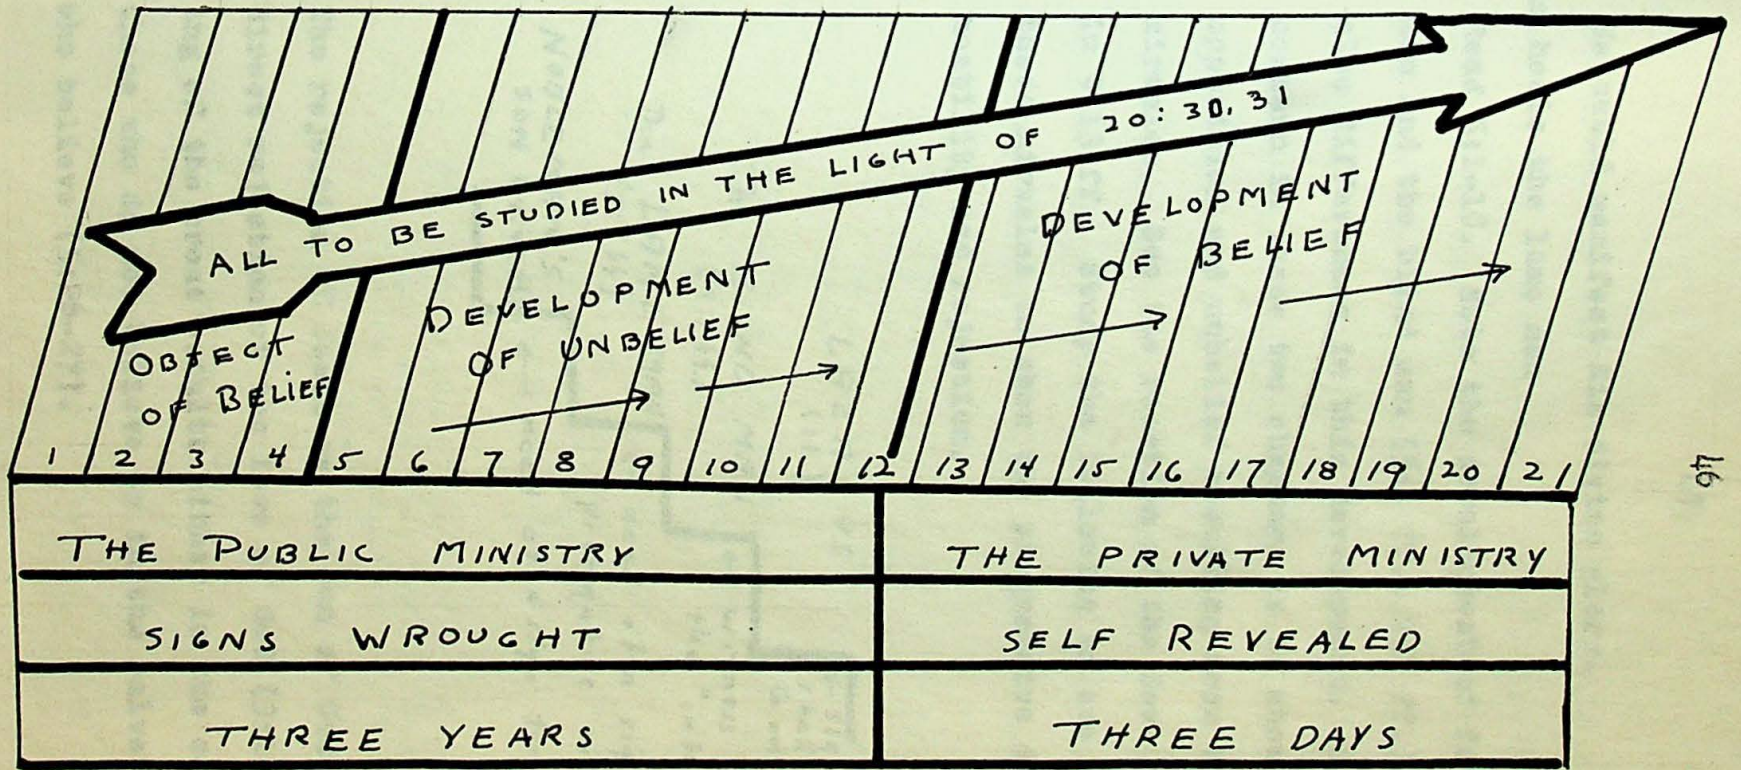 ALL TO BE STUDIED IN THE LIGHT OF 20:30,31
OBJECT
OF BELIEF
DEVELOPMENT
OF UNBELIEF
DEVELOPMENT
OF BELIEF
1 2 3 4 5 6 7 8 9 10 11 12 13 14 15 16 17 18 19 20 21
THE PUBLIC MINISTRY
THE PRIVATE MINISTRY
SIGNS WROUGHT
SELF REVEALED
THREE YEARS
THREE DAYS
46